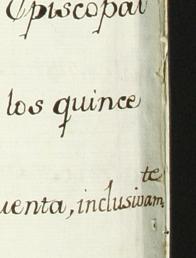 Episcopal
los quince
uenta, inclusivam.te